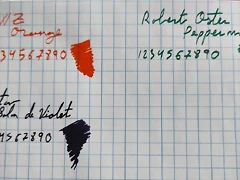 Orange
34567890
Robert Oster
Pepperm
1234567890
de Violet
4567890